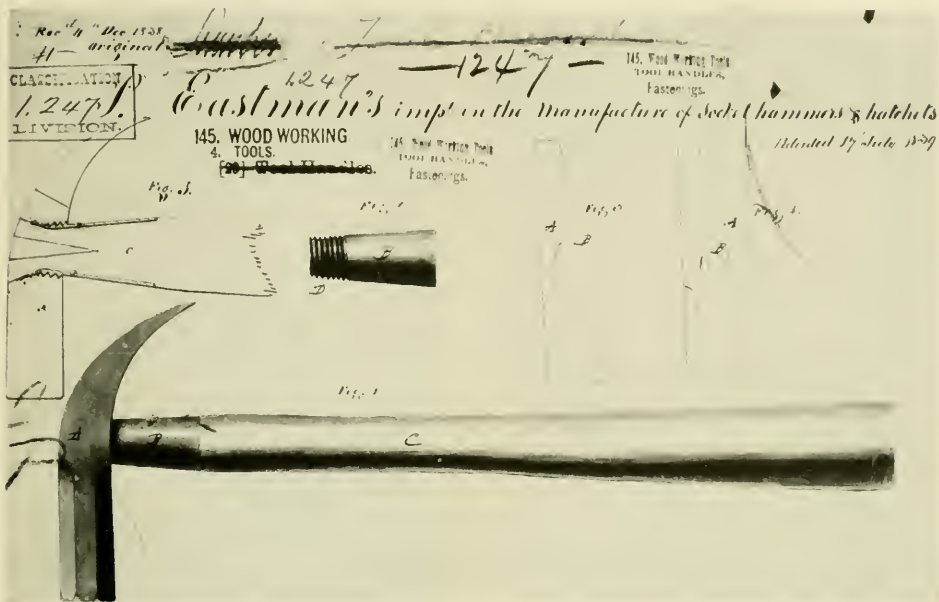 Rec'd 4" Dec 1838
original
1247
— 124 —
145. Wood Working Tools
TOOL HANDLES,
Fastenings.
CLASSIFICATION
1.247
DIVISION.
Eastman's imp't in the Manufacture of Socket hammers & hatchets
Patented 17 July 1839
145. WOOD WORKING
4. TOOLS.
[20] Wood Handles.
145. Wood Working Tools
TOOL HANDLES,
Fastenings.
Fig.
Fig.
Fig.
Fig.
A
B
A
B
C
B
D
Fig. 1
A
B
C